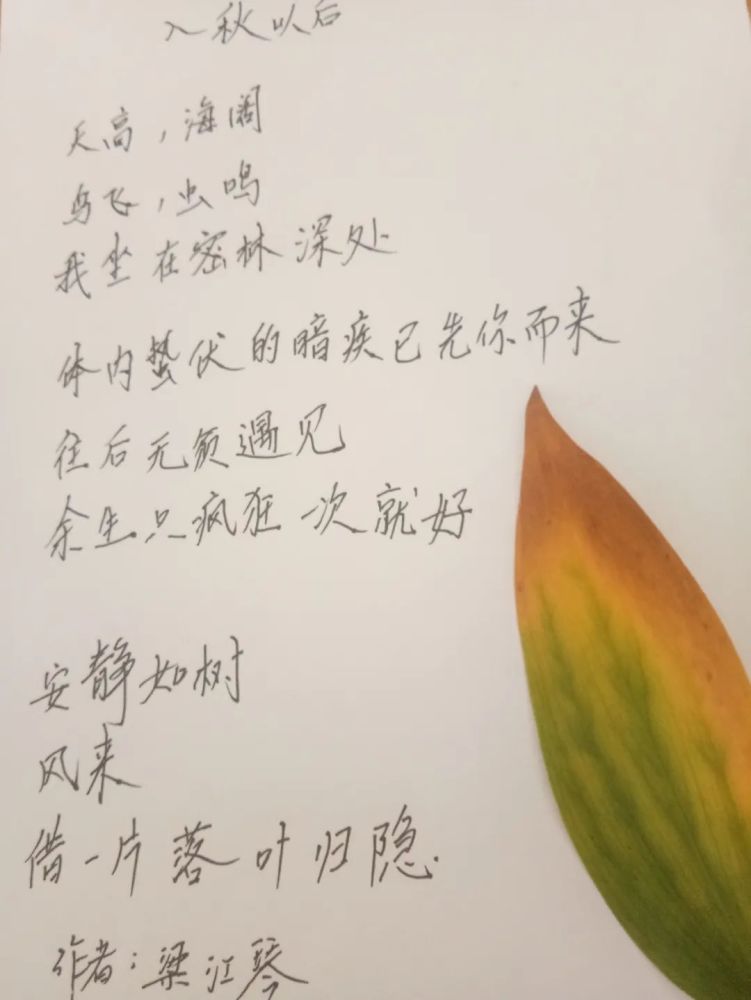 入秋以后
天高，海阔
鸟飞，虫鸣
我坐在密林深处
体内蛰伏的暗疾已先你而来
往后无须遇见
余生只疯狂一次就好
安静如树
风来
借一片落叶归隐.
作者：梁江琴